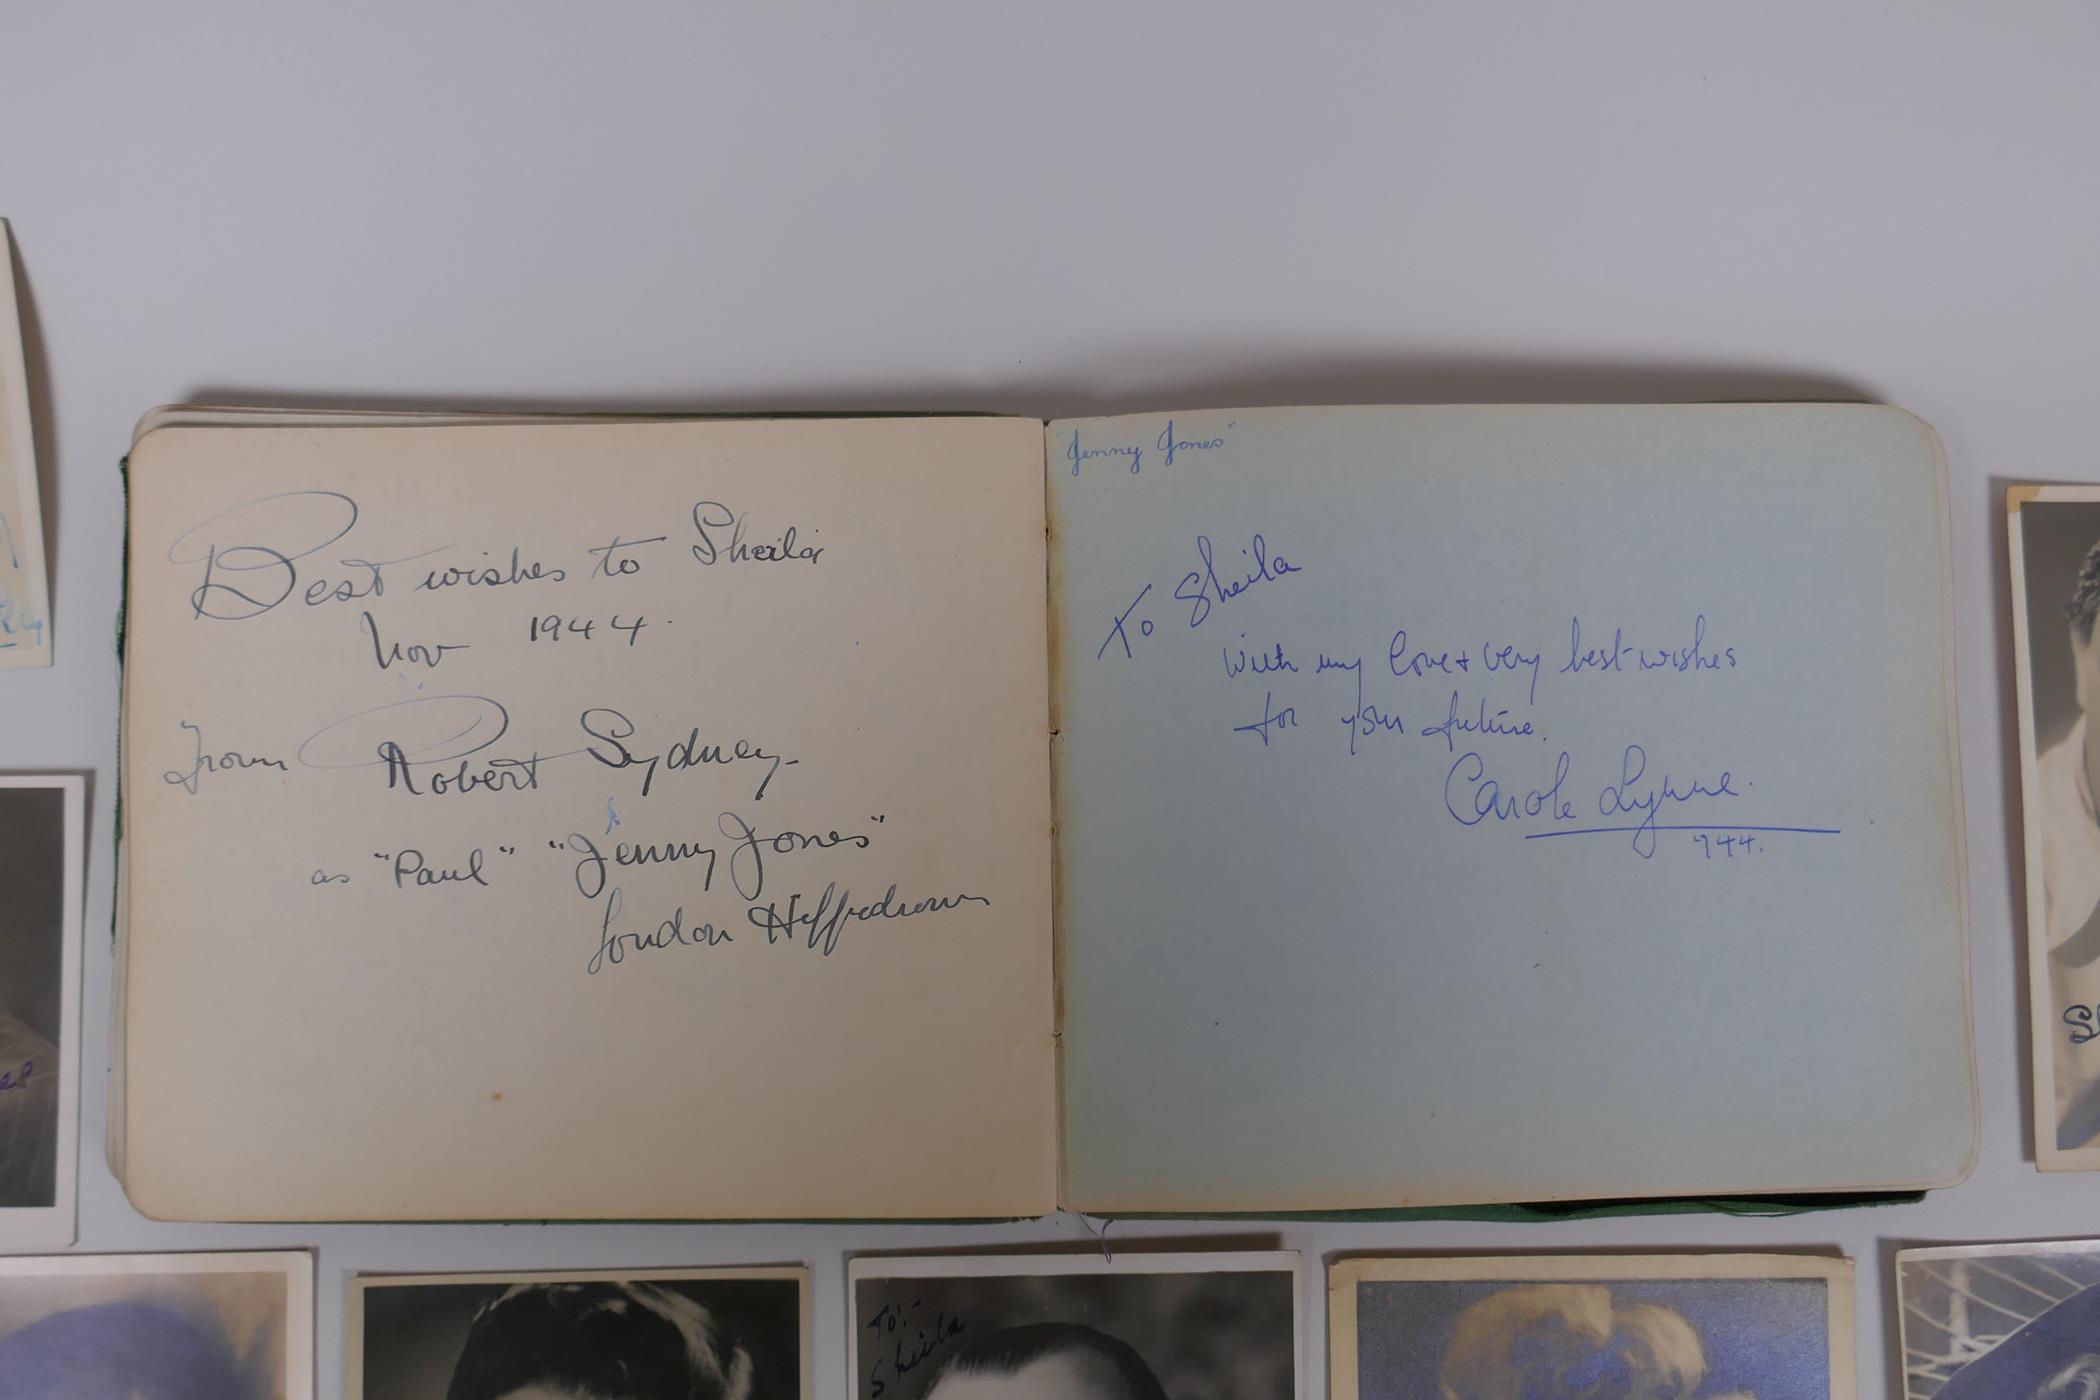 Best wishes to Sheila
Nov 1944.
From Robert Sydney
as "Paul" "Jenny Jones"
London Hippodrome
"Jenny Jones"
To Sheila
With my love & very best wishes
for your future.
Carole Lynne.
1944.
To:-
Sheila